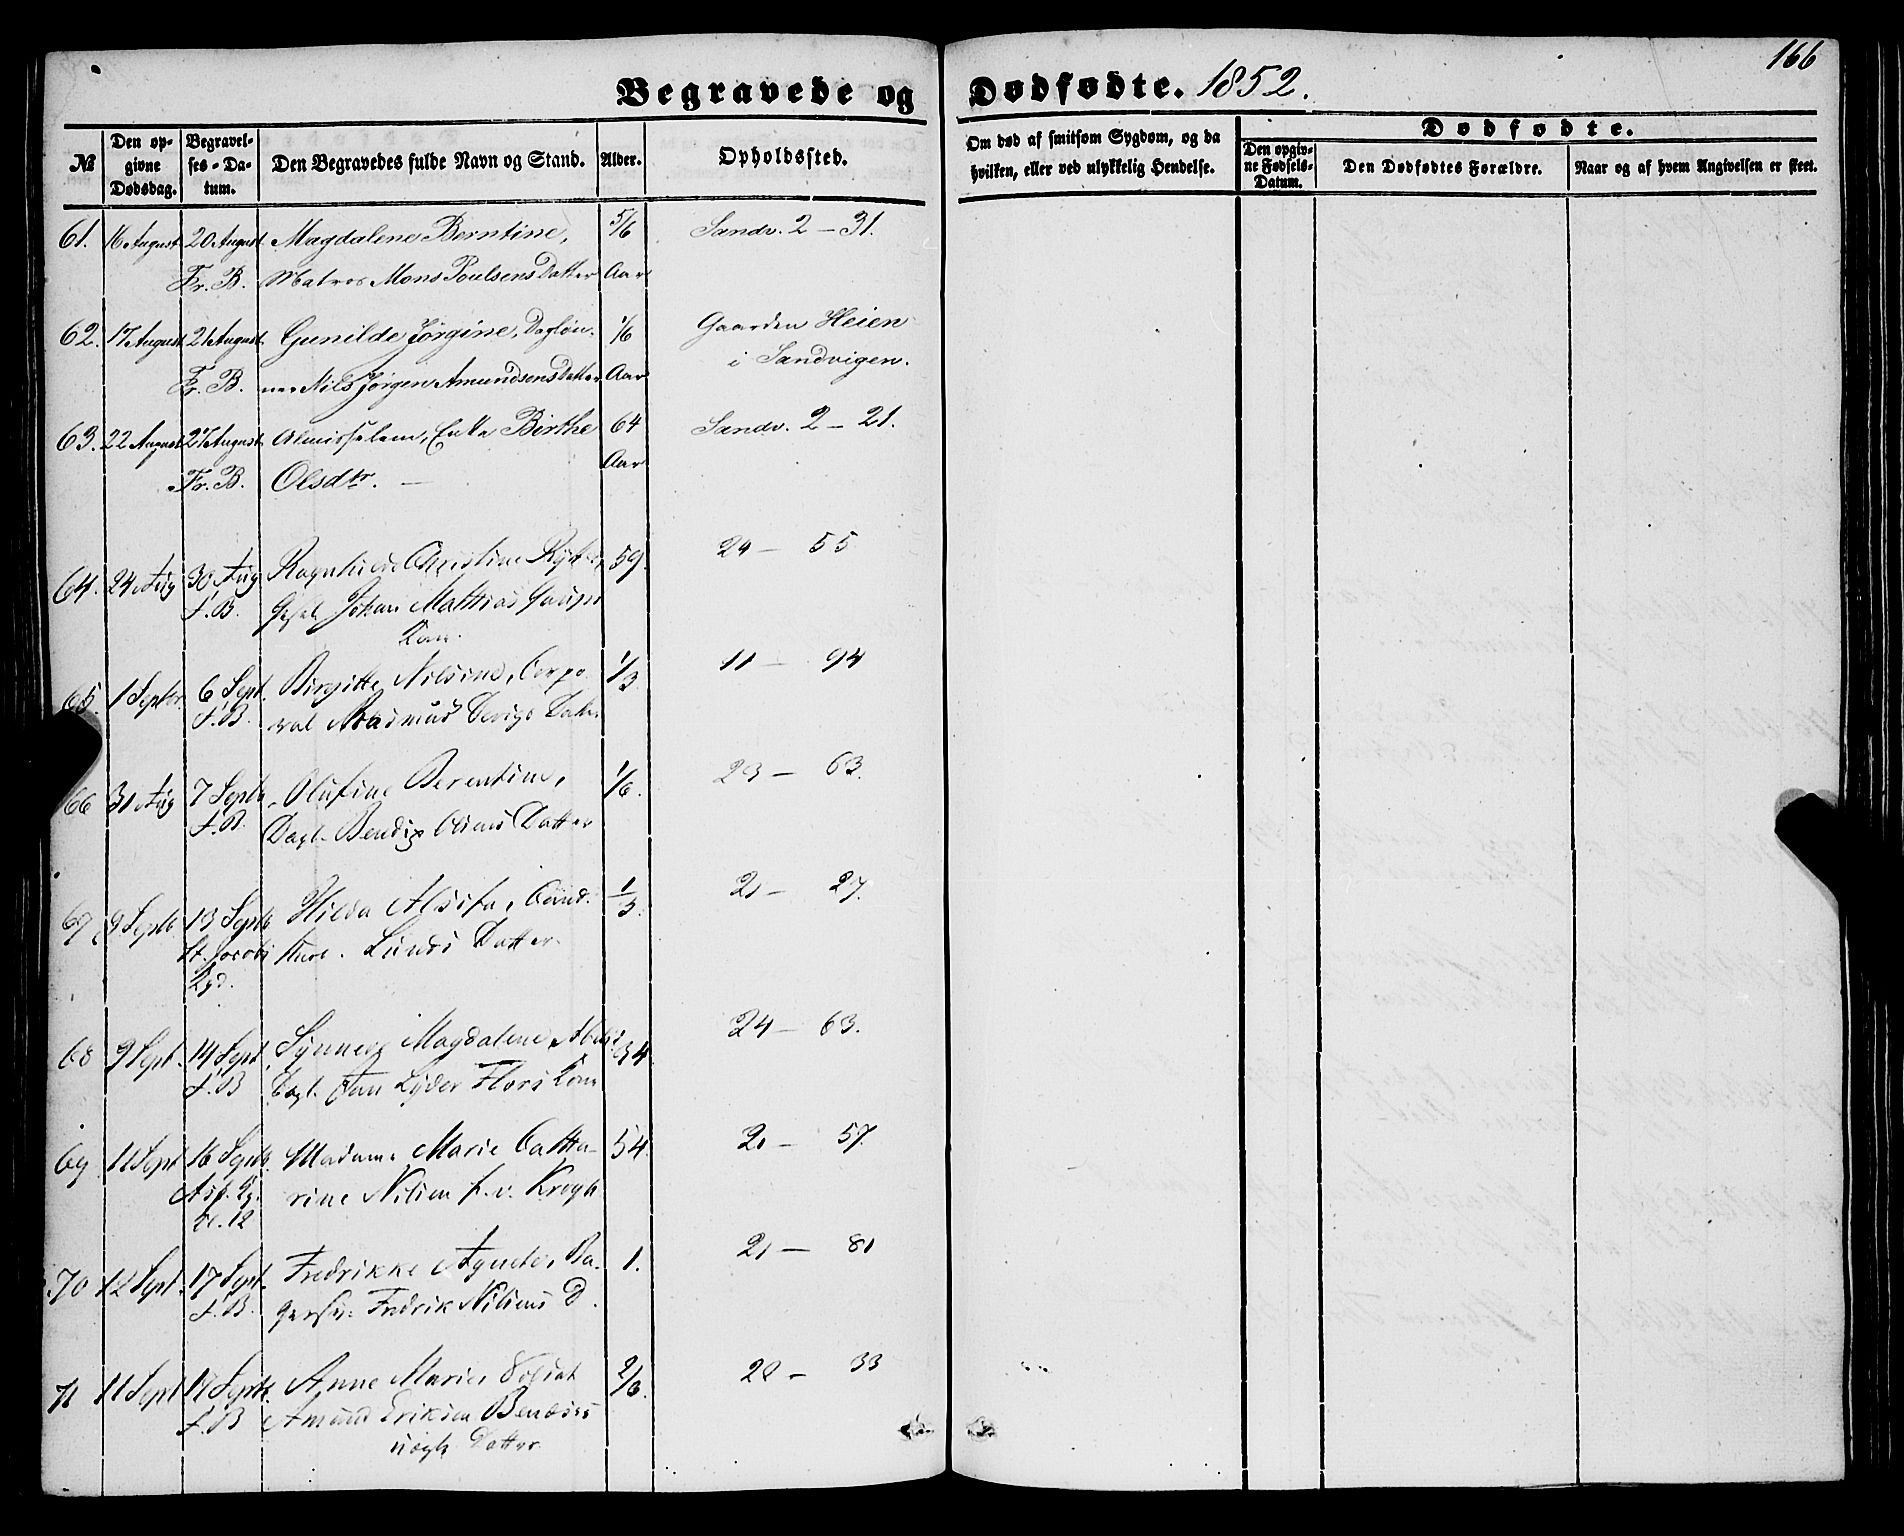 166
Begravede og Dødfødte. 1852.
№
Den opgivne Dødsdag.
Begravelses-Datum.
Den Begravedes fulde Navn og Stand.
Alder.
Opholdssted.
Om død af smitsom Sygdom, og da
hvilken, eller ved ulykkelig Hendelse.
Dødfødte.
Den opgivne Fødsels-Datum.
Den Dødfødtes Forældre.
Naar og af hvem Angivelsen er skeet.
61. 16 August 20 August Magdalene Berntine, 5/6 Sandv. 2 – 31.
Fr. B. Matros Mons Poulsens Datter Aar
62. 17 August 21 August Gunilde Jørgine, Dagløn- 1/6 Gaarden Heien
Fr. B. ner Nils Jørgen Amundsens Datter Aar i Sandvigen.
63. 22 August 27 August Almisselem, Enke Birthe 64 Sandv. 2 – 21.
Fr. B. Olsdtr. – Aar
64. 24 Aug 30 Aug Christine 59. 24 – 55
F. B. Johan Mathias
Kone.
65. 1 Septr. 6 Sept. Birgitte Nilsine, Corpo- 1/3 11 – 94
F. B. ral Rasmus Datter
66 31 Aug 7 Septb Olufine Berentine, 1/6. 23 – 63.
F. B. Dagl. Bendix Olsens Datter
67 9 Septb 13 Septb Hilda 1/3. 21 – 27.
St. Jacobs Lunds Datter
Kgd.
68 9 Sept. 14 Sept. Synneve Magdalene 34. 24 – 63.
F. B Dagl. Jan Lyder Flors Kone
69 11 Sept 16 Septb. Madame Marie Catha- 54. 21 – 57.
rine Nilsen f. v. Krogh
Kl. 12
70 12 Sept. 17 Sept. Fredrikke Agnete, Ba- 1. 21 – 81
F. B. gersv. Fredrik Nilsens D.
71 11 Sept 17 Septb. Anne Marie, Soldat 2/3. 20 – 33
F. B Amund Eriksen
Datter